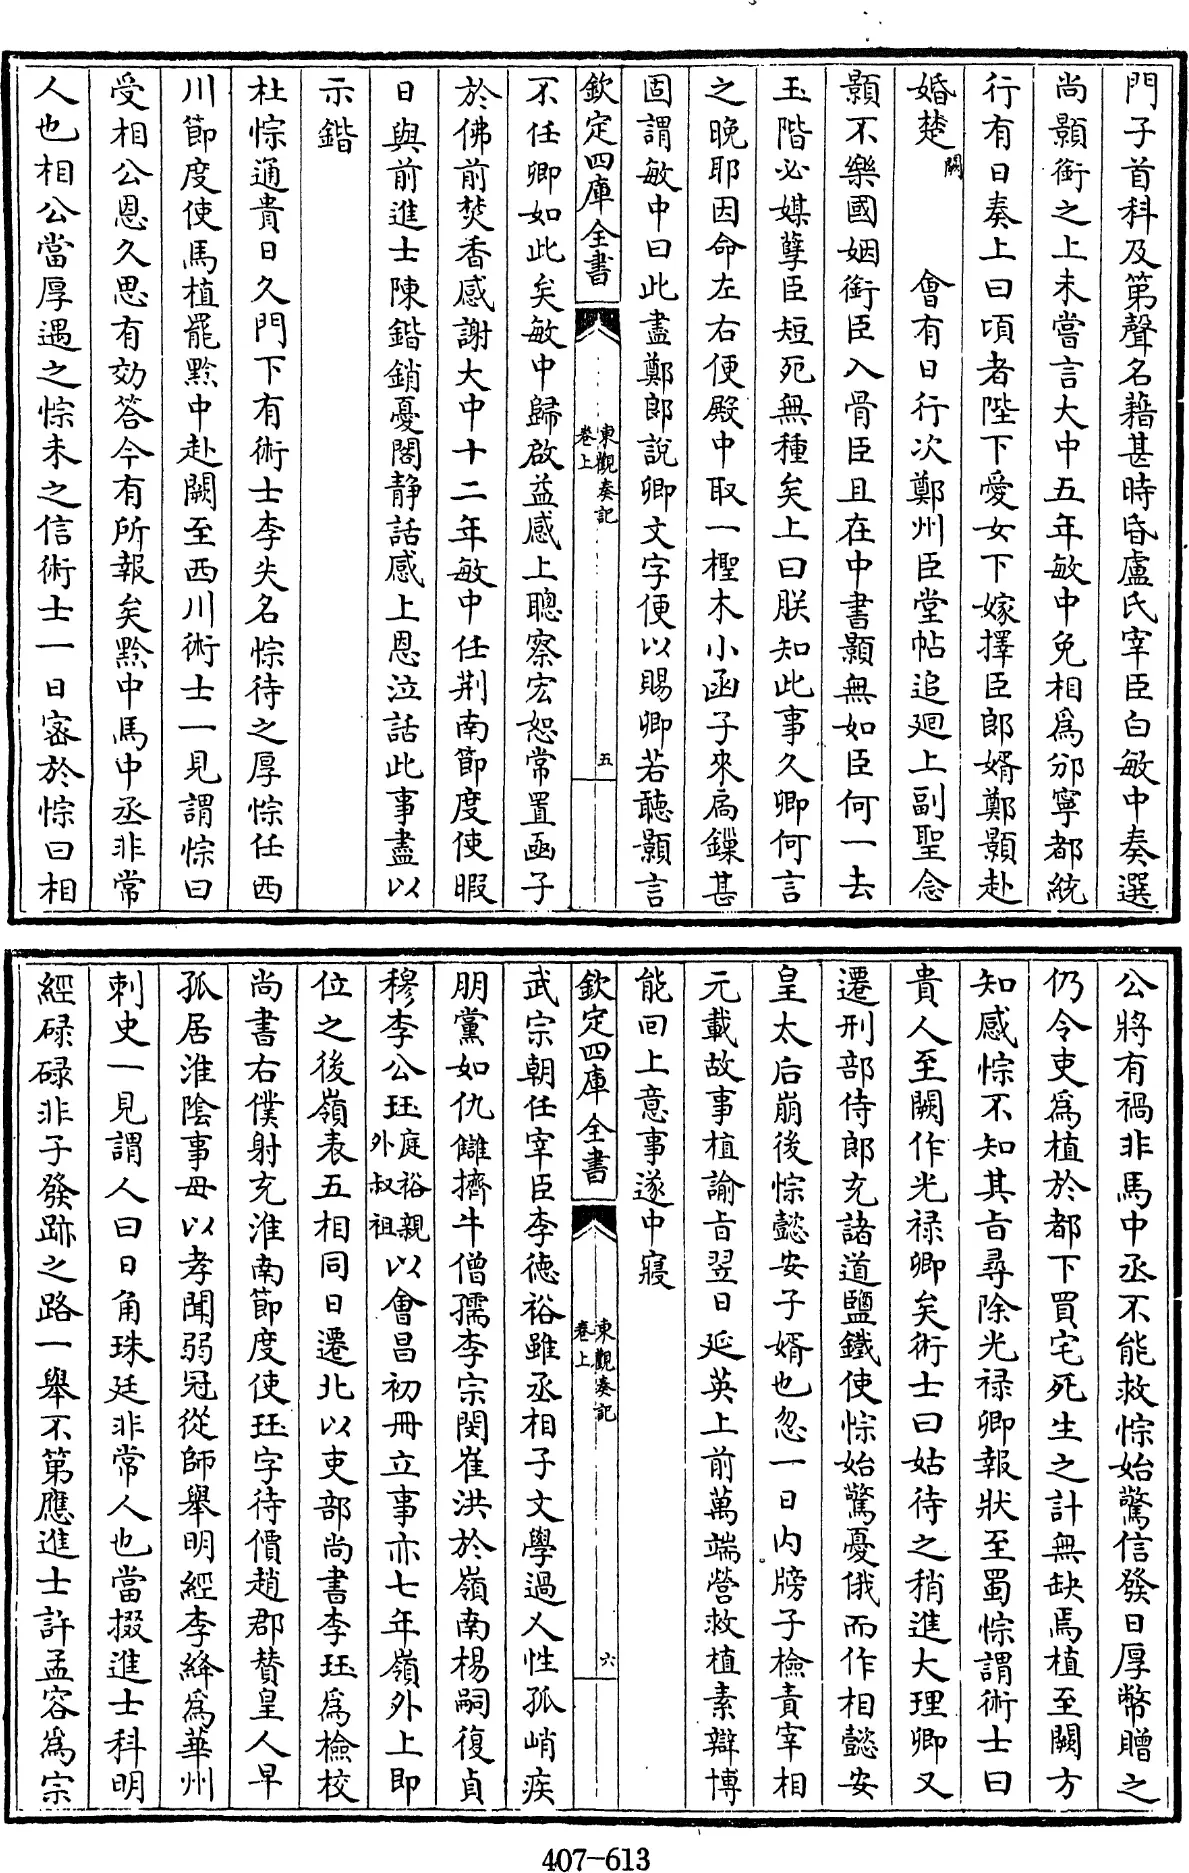 門子首科及第聲名藉甚時昏盧氏宰臣白敏中奏選
尚顥銜之上未嘗言大中五年敏中免相為邠寧都統
行有日奏上曰頃者陛下愛女下嫁擇臣郎婿鄭顥赴
婚楚闕會有日行次鄭州臣堂帖追廻上副聖念
顥不樂國姻銜臣入骨臣且在中書顥無如臣何一去
玉階必媒孽臣短死無種矣上曰朕知此事久卿何言
之晚耶因命左右便殿中取一檉木小函子來扃鏁甚
固謂敏中曰此盡鄭郎說卿文字便以賜卿若聽顥言
欽定四庫全書 東觀奏記 卷上 五
不任卿如此矣敏中歸啟益感上聰察宏恕常置函子
於佛前焚香感謝大中十二年敏中任荆南節度使暇
日與前進士陳鍇銷憂閣静話感上恩泣話此事盡以
示鍇
杜悰通貴日久門下有術士李失名悰待之厚悰任西
川節度使馬植罷黔中赴闕至西川術士一見謂悰曰
受相公恩久思有効答今有所報矣黔中馬中丞非常
人也相公當厚遇之悰未之信術士一日密於悰曰相
公將有禍非馬中丞不能救悰始驚信發日厚幣贈之
仍令吏為植於都下買宅死生之計無缺焉植至闕方
知感悰不知其㫖尋除光禄卿報狀至蜀悰謂術士曰
貴人至闕作光禄卿矣術士曰姑待之稍進大理卿又
遷刑部侍郎充諸道鹽鐵使悰始驚憂俄而作相懿安
皇太后崩後悰懿安子婿也忽一日内牓子檢責宰相
元載故事植諭㫖翌日延英上前萬端營救植素辯博
能回上意事遂中寢
欽定四庫全書 東觀奏記 卷上 六
武宗朝任宰臣李徳裕雖丞相子文學過人性孤峭疾
朋黨如仇讎擠牛僧孺李宗閔崔洪於嶺南楊嗣復貞
穆李公珏庭裕親外叔祖以會昌初冊立事亦七年嶺外上即
位之後嶺表五相同日遷北以吏部尚書李珏為檢校
尚書右僕射充淮南節度使珏字待價趙郡賛皇人早
孤居淮陰事母以孝聞弱冠從師舉明經李絳為華州
刺史一見謂人曰日角珠廷非常人也當掇進士科明
經碌碌非子發跡之路一舉不第應進士許孟容為宗
407-613